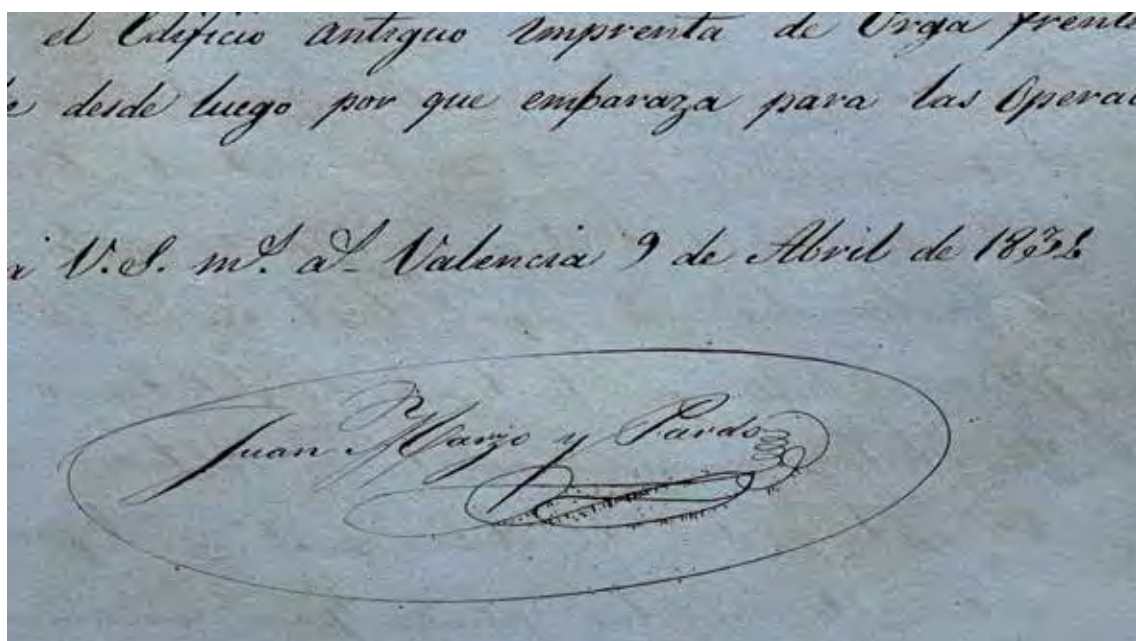 el Edificio antiguo Imprenta de Orga frente
desde luego por que embaraza para las Opera
V.S. m.s a.s Valencia 9 de Abril de 1832
Juan Marzo y Pardo